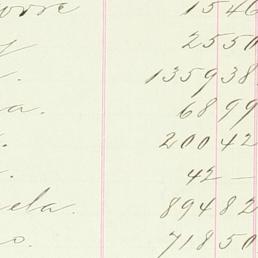 1546
2550
1359 38
a. 68 99
200 42
42 —
ela. 894 82
o. 718 50